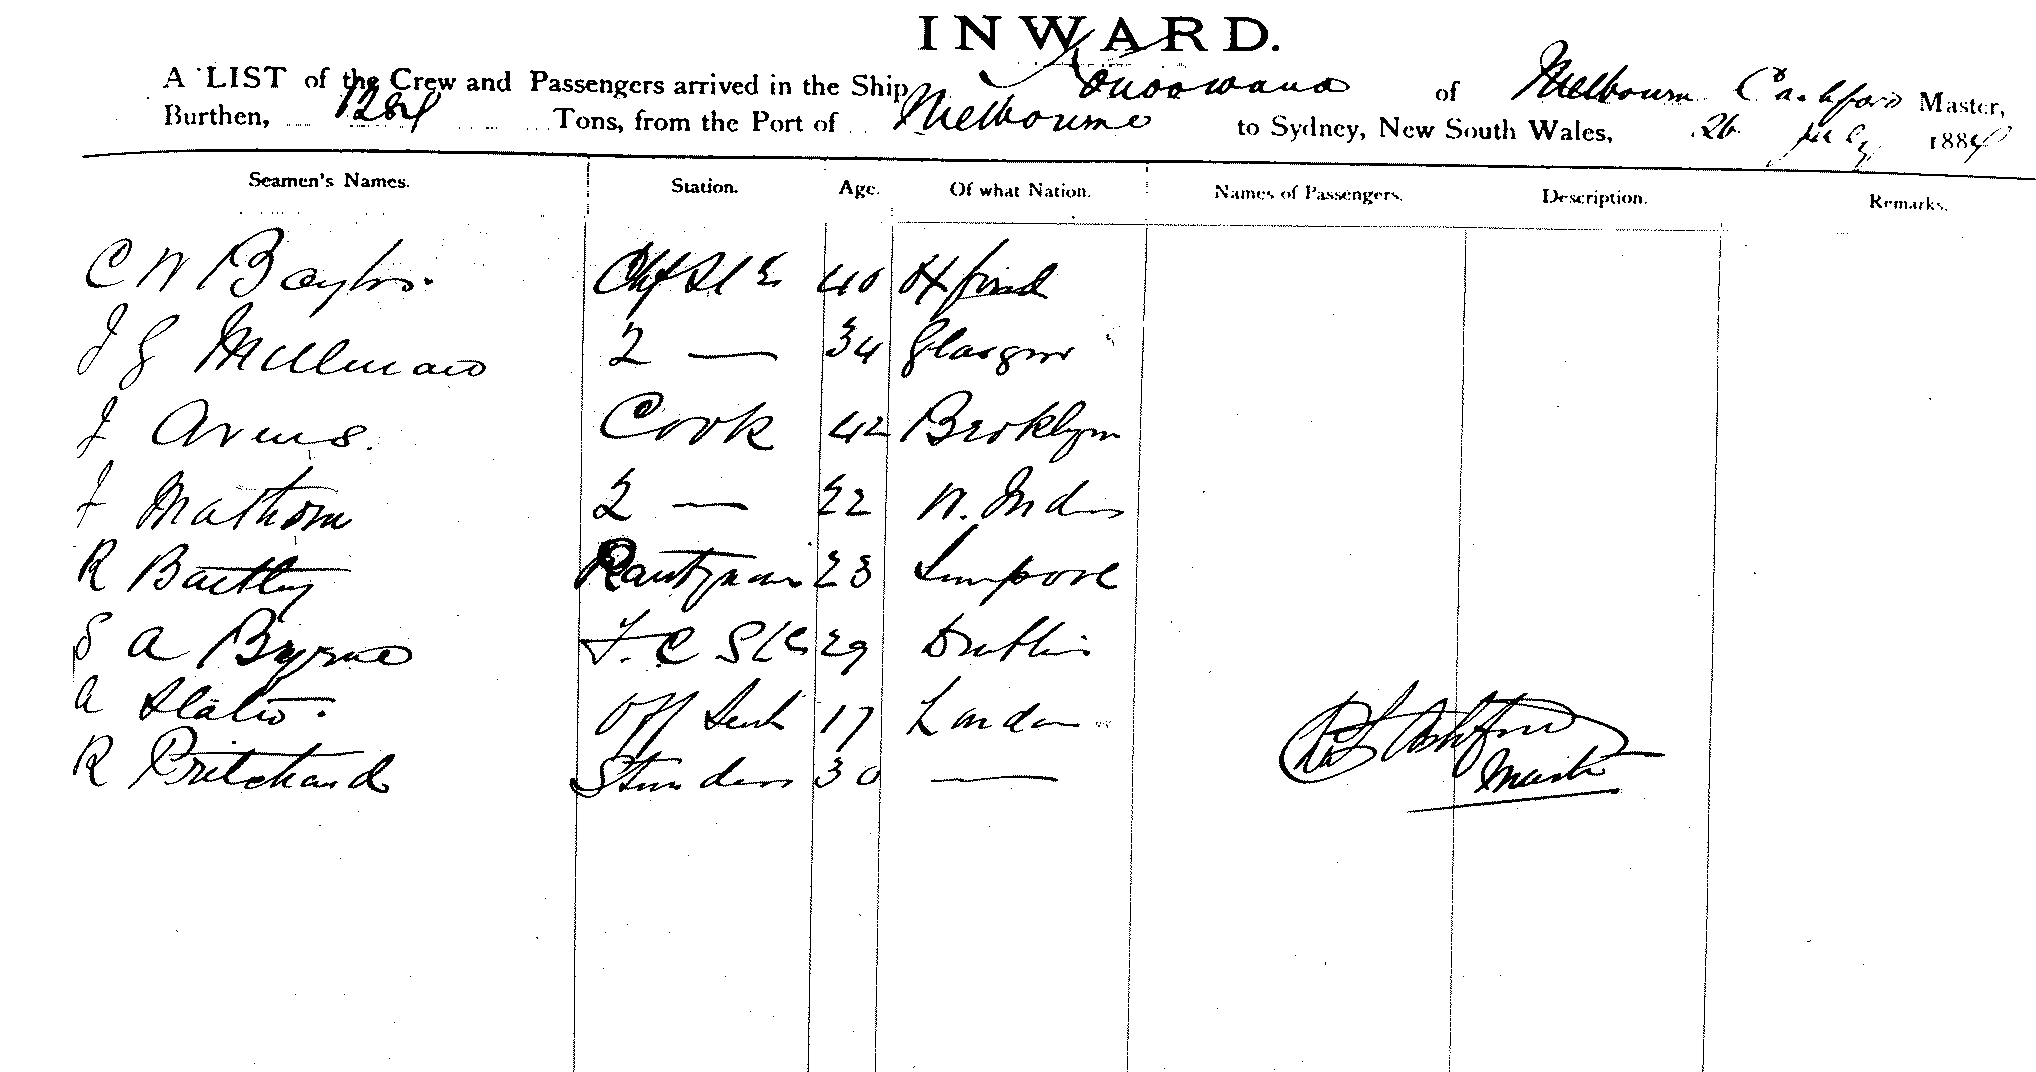 INWARD.
A LIST of the Crew and Passengers arrived in the Ship Konoowarra of Melbourne Cashford Master,
Burthen, Tons, from the Port of Melbourne to Sydney, New South Wales, 26 July 1884
Seamen's Names. Station. Age. Of what Nation. Names of Passengers. Description. Remarks.
C W Baylis. 40 Oxford
J G Millman 2 — 34 Glasgow
J Arms. Cook 42 Broklyn
J Mathom 2 — 22 W. Inds
R Bartley Pantryman 23 Liverpool
S A Byrne F. C 29 Dublin
A Slater. Off 17 London
R Pritchard 30 —
Ashford
Master